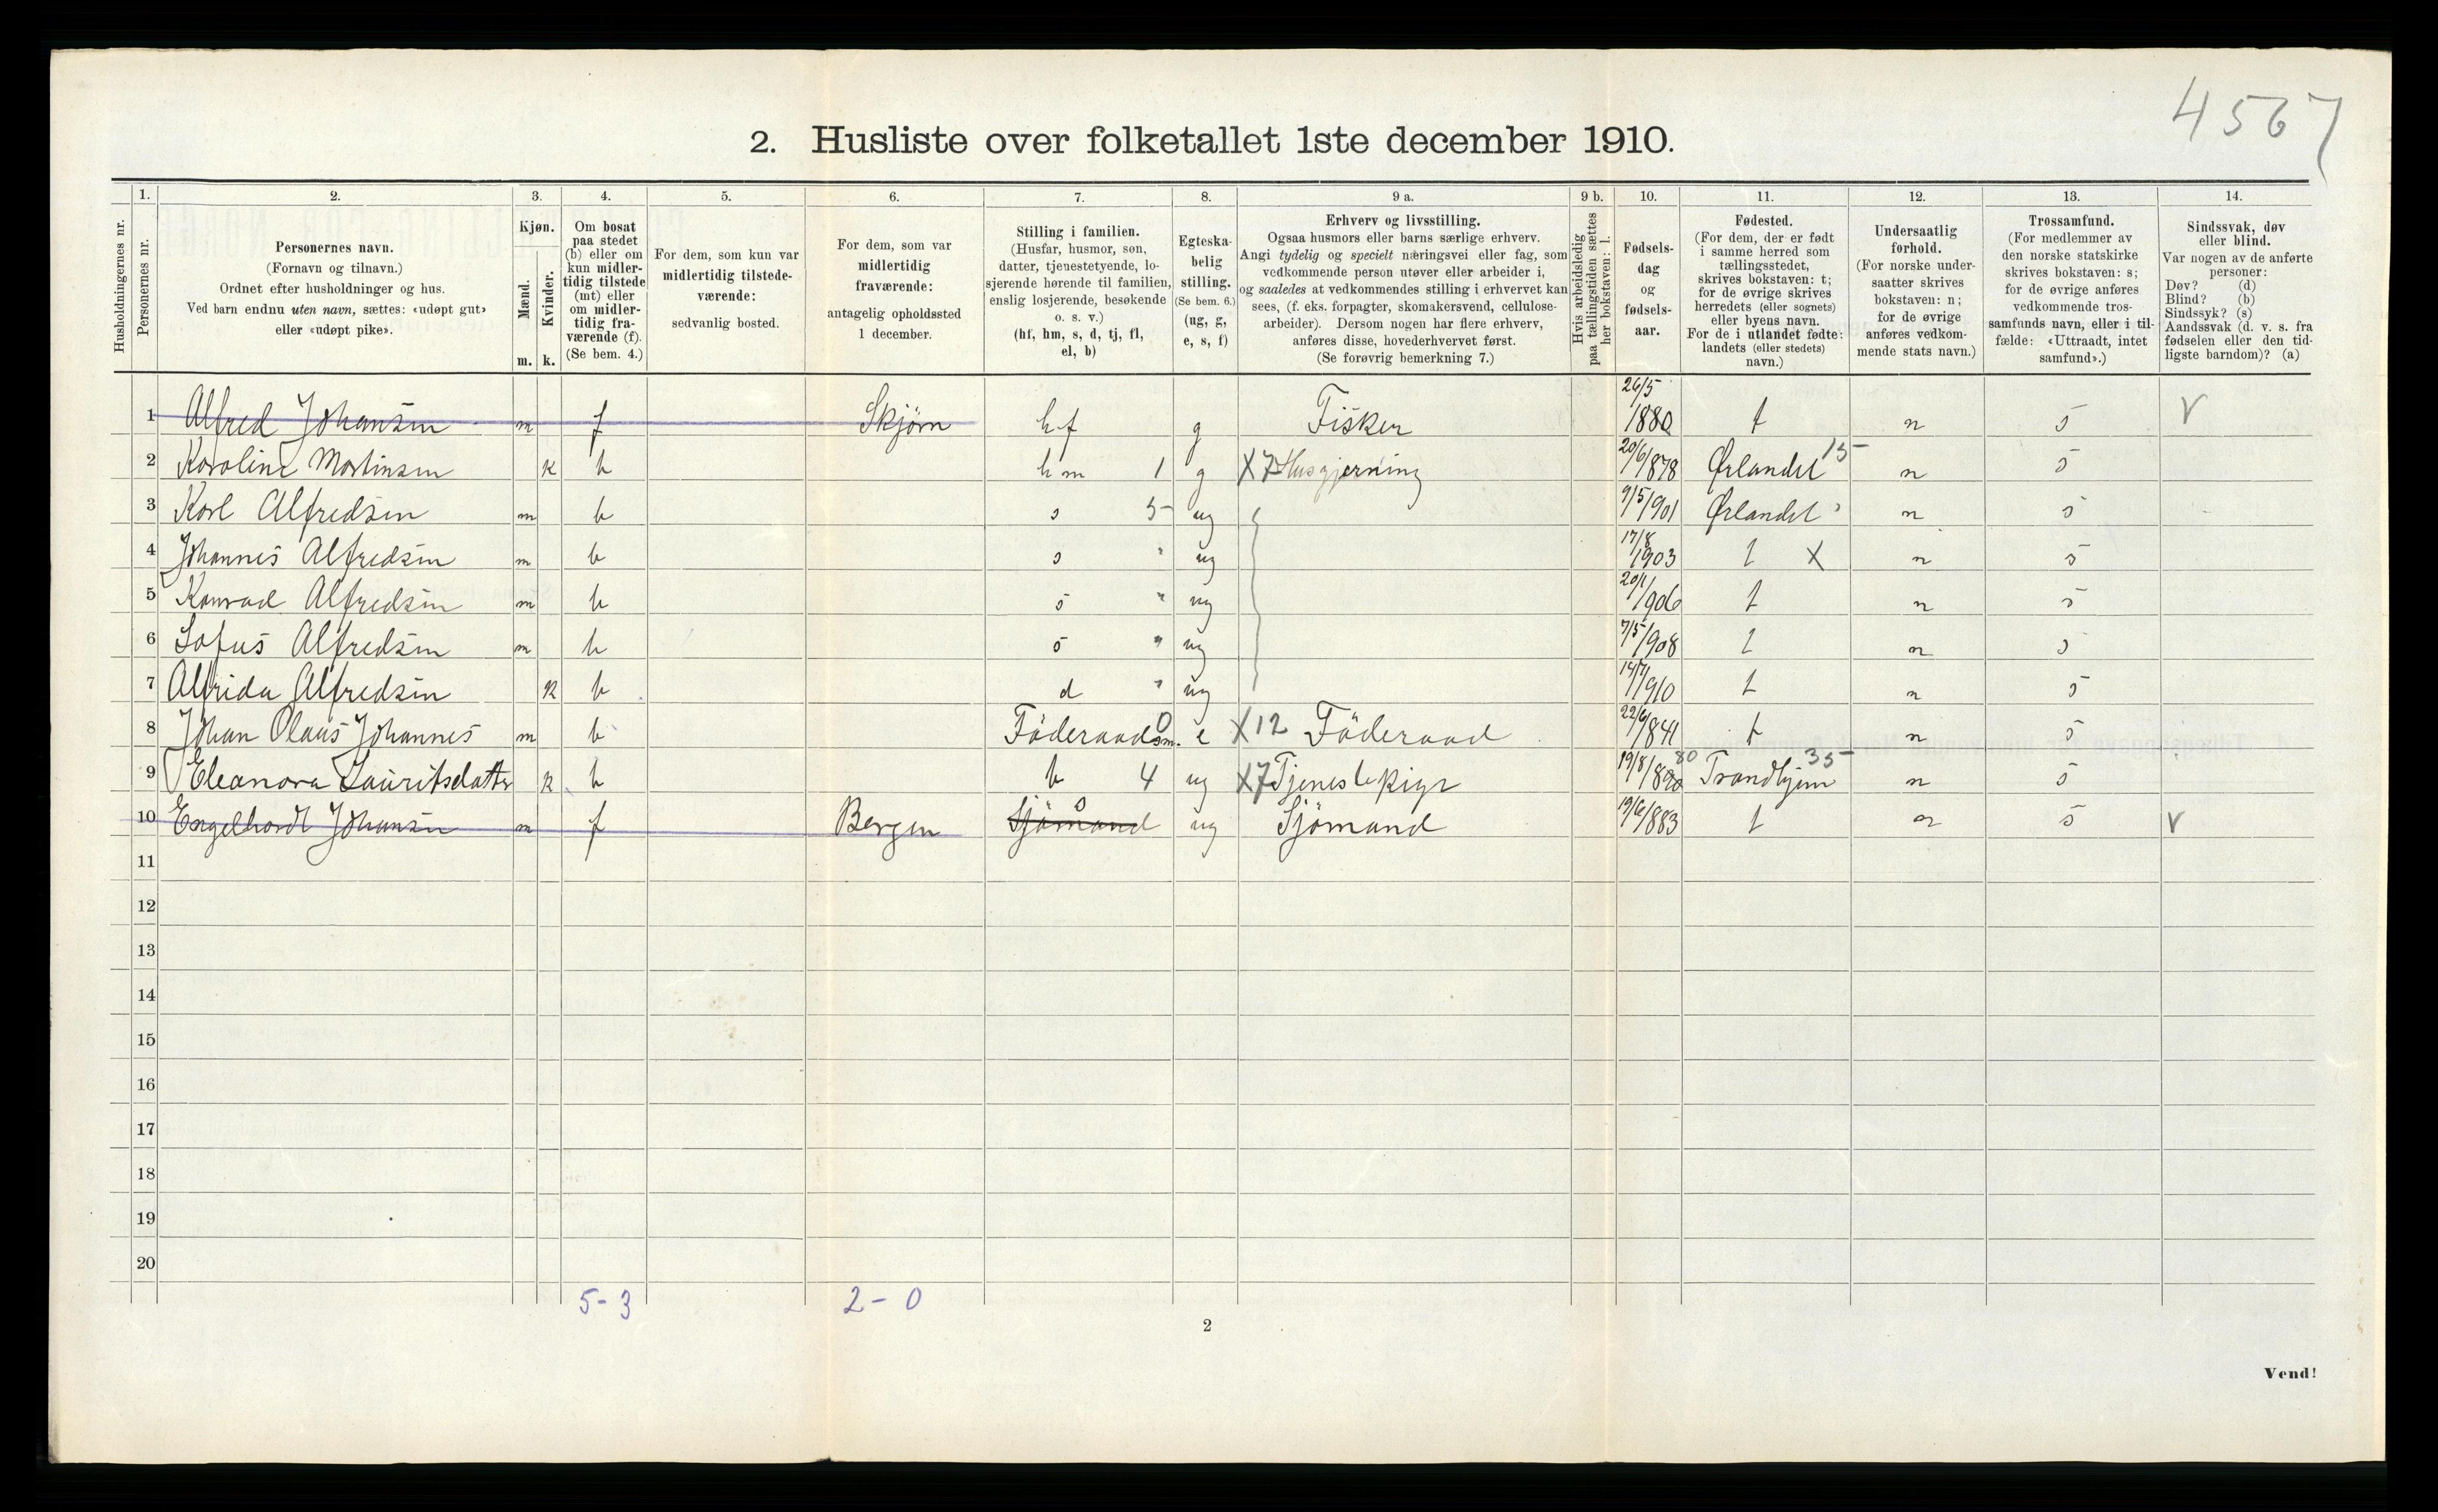 4567
2. Husliste over folketallet 1ste december 1910.
1. 2. 3. 4. 5. 6. 7. 8. 9 a. 9 b. 10. 11. 12. 13. 14.
Husholdningernes nr.
Personernes nr.
Personernes navn.
(Fornavn og tilnavn.)
Ordnet efter husholdninger og hus.
Ved barn endnu uten navn, sættes: «udøpt gut»
eller «udøpt pike».
Kjøn.
Mænd.
Kvinder.
m. k.
Om bosat
paa stedet
(b) eller om
kun midler-
tidig tilstede
(mt) eller
om midler-
tidig fra-
værende (f).
(Se bem. 4.)
For dem, som kun var
midlertidig tilstede-
værende:
sedvanlig bosted.
For dem, som var
midlertidig
fraværende:
antagelig opholdssted
1 december.
Stilling i familien.
(Husfar, husmor, søn,
datter, tjenestetyende, lo-
sjerende hørende til familien,
enslig losjerende, besøkende
o. s. v.)
(hf, hm, s, d, tj, fl,
el, b)
Egteska-
belig
stilling.
(Se bem. 6.)
(ug, g,
e, s, f)
Erhverv og livsstilling.
Ogsaa husmors eller barns særlige erhverv.
Angi tydelig og specielt næringsvei eller fag, som
vedkommende person utøver eller arbeider i,
og saaledes at vedkommendes stilling i erhvervet kan
sees, (f. eks. forpagter, skomakersvend, cellulose-
arbeider). Dersom nogen har flere erhverv,
anføres disse, hovederhvervet først.
(Se forøvrig bemerkning 7.)
Hvis arbeidsledig
paa tællingstiden sættes
her bokstaven: l.
Fødsels-
dag
og
fødsels-
aar.
Fødested.
(For dem, der er født
i samme herred som
tællingsstedet,
skrives bokstaven: t;
for de øvrige skrives
herredets (eller sognets)
eller byens navn.
For de i utlandet fødte:
landets (eller stedets)
navn.)
Undersaatlig
forhold.
(For norske under-
saatter skrives
bokstaven: n;
for de øvrige
anføres vedkom-
mende stats navn.)
Trossamfund.
(For medlemmer av
den norske statskirke
skrives bokstaven: s;
for de øvrige anføres
vedkommende tros-
samfunds navn, eller i til-
fælde: «Uttraadt, intet
samfund».)
Sindssvak, døv
eller blind.
Var nogen av de anførte
personer:
Døv? (d)
Blind? (b)
Sindssyk? (s)
Aandssvak (d. v. s. fra
fødselen eller den tid-
ligste barndom)? (a)
1 Alfred Johansen m f Skjørn hf g Fisker 26/5 1880 t n s V
2 Karoline Martinsen k b hm 1 g X7 Husgjerning 20/6/878 Ørlandet 15 n s
3 Karl Alfredsen m b s 5 ug 9/5/901 Ørlandet n s
4 Johannes Alfredsen m b s " ug 17/8 1903 t X n s
5 Konrad Alfredsen m b s " ug 20/1/906 t n s
6 Sofus Alfredsen m b s " ug 7/5/908 t n s
7 Alfrida Alfredsen k b d " ug 14/7/1910 t n s
8 Johan Olaus Johannes m b Föderaadsm. 0 e X12 Föderaad 22/6/841 t n s
9 Eleanora Lauritsdatter k b b 4 ug X7 Tjenestepige 19/8/880 Trondhjem 35 n s
10 Engelhardt Johansen m f Bergen Sjömand ug Sjömand 19/6/883 t n s V
11
12
13
14
15
16
17
18
19
20
5-3 2-0
2
Vend!